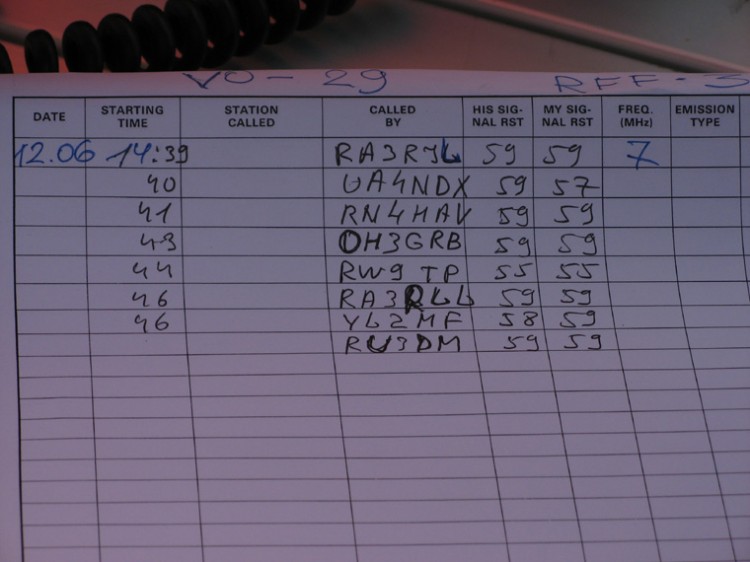 VO-29 RFF-3
DATE STARTING TIME STATION CALLED CALLED BY HIS SIGNAL RST MY SIGNAL RST FREQ. (MHz) EMISSION TYPE
12.06 14:39 RA3RYL 59 59 7
40 UA4NDX 59 57
41 RN4HAV 59 59
43 OH3GRB 59 59
44 RW9TP 55 55
46 RA3RLL 59 59
46 YL2MF 58 59
RU3DM 59 59